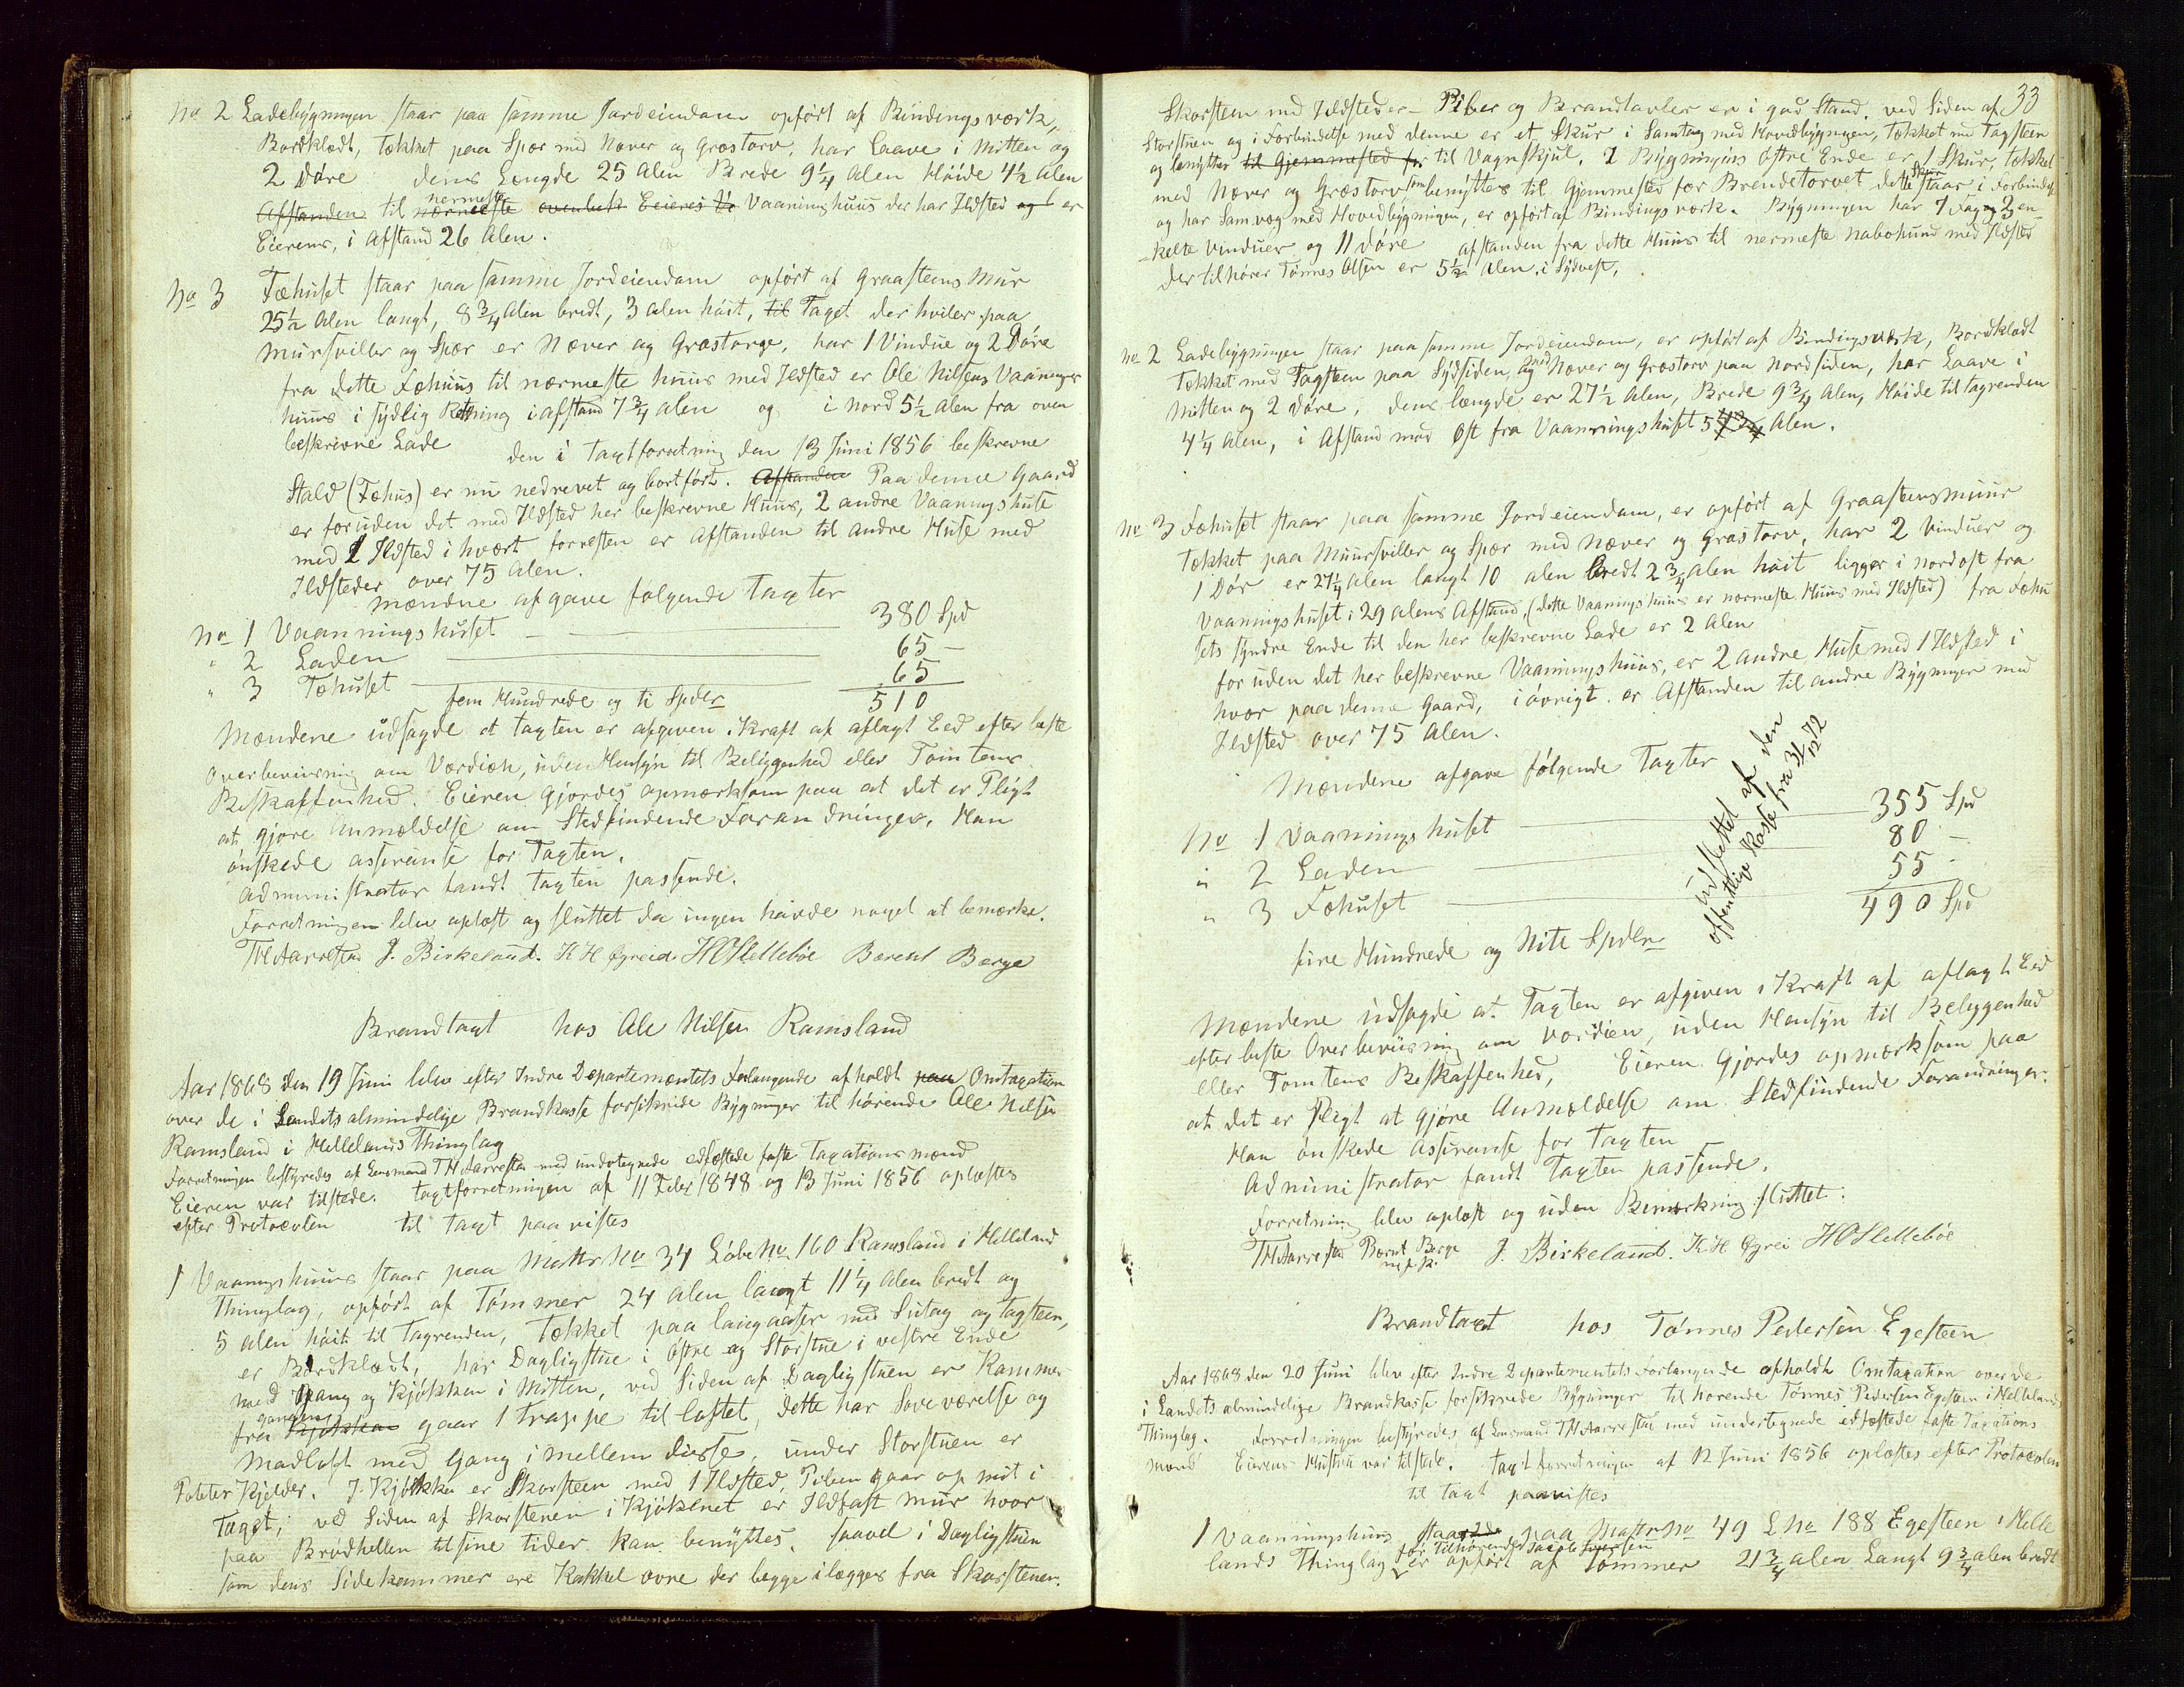 No 2 Ladebygningen staar paa samme Jordeiendom opført af Bindingsværk,
Bordklædt, tækket paa Spær med Næver og Græstorv, har Laave i Mitten og
2 Døre dens Længde 25 Alen Brede 9¼ Alen Høide 4½ Alen
Afstanden til nærmeste Vaaningshuus der har Ildsted og er
Eierens, i Afstand 26 Alen.
No 3 Fæhuset staar paa samme Jordeiendom opført af Graasteens Mur
25½ Alen langt, 8¾ Alen bredt, 3 alen høit, til Taget der hviler paa
Mursviller og Spær er Næver og Græstorge, har 1 Vindue og 2 Døre
fra dette Fæhuus til nærmeste huus med Ildsted er Ole Nilsens Vaanings
huus i sydlig Retning i afstand 7¾ Alen og i Nord 5½ Alen fra oven
beskrevne Lade den i Taxtforretning den 13 Juni 1856 beskrevne
Stald (Fæhus) er nu nedrevet og bortført. Afstanden Paa denne Gaard
er foruden det med Ildsted her beskrevne Huus, 2 andre Vaaningshuse
med 1 Ildsted i hvært forresten er Afstanden til andre Huse med
Ildsteder over 75 Alen.
Mændne afgave følgende Taxter
No 1 Vaanningshuset 380 Spd
" 2 Laden 65 -
" 3 Fæhuset 65
fem Hundrede og ti Spdlr 510
Mændene udsagde at taxten er afgiven i Kraft af aflagt Eed efter beste
Overbeviisning om Værdien, uden Hensyn til Beliggenhed eller Tomtens
Beskaffenhed. Eieren gjordes opmærksom paa at det er Pligt
at gjøre Anmældelse om Stedfindende Forandringer. Han
ønskede assuranse for Taxten.
Administrator fandt taxten passende.
Forretningen blev oplæst og sluttet da ingen havde noget at bemærke.
TH Aarrestad J. Birkeland. K H Eyreid H O Hellebøe Bærent Berge
Brandtaxt hos Ole Nilsen Ramsland
Aar 1868 den 19 Juni blev efter Indre Departementets Forlangende afholdt paa Omtaxation
over de i Landets almindelige Brandkasse forsikrede Bygninger tilhørende Ole Nilsen
Ramsland i Hellelands Thinglag
Forretningen bestyredes af Lensmand TH Aarrestad med undertegnede edfæstede faste Taxationsmænd
Eieren var tilstede. Taxtforretningen af 11 Feber 1848 og 13 Juni 1856 oplæstes
efter Protocolen til Taxt paavistes
1 Vaaningshuus staar paa Mattr No 34 Løbe No 160 Ramsland i Helleland
Thinglag, opført af Tømmer 24 Alen langt 11¼ Alen bredt og
5 alen høit til Tagrenden, Tækket paa langaaser med Sutag og Tagsteen,
er Bordklædt, har Dagligstue i østre og Storstue i vestre Ende
med Gang og Kjøkken i Mitten, ved Siden af Dagligstuen er Kammer
fra Kjøkken gangen gaar 1 Trappe til loftet, dette har Soveværelse og
Madloft med Gang imellem disse, under Storstuen er
Poteter Kjelder. I Kjøkken er Skorsteen med 1 Ildsted, Piben gaar op mit i
Taget; ved Siden af Skorstenen i Kjøkkenet er Ildfast mur hvor
paa Brødhellen til sine tider kan benyttes, saavel i Dagligstuen
som dens Sidekammer ere Kakkelovne der begge ilægges fra Skorstenen.
33
Skorsteen med Ildsteder - Piber og Brandtavler er i god Stand. ved Siden af
Storstuen og i Forbindelse med denne er et Skur i Samtag med Hovedbygningen, tækket med Tagsteen
og benyttes til Gjemmested for til Vognskjul. I Bygningens Østre Ende er 1 Skur, tækket
med Næver og Græstorv som benyttes til Gjemmested for Brendetorvet dette Skur staar i Forbindelse
og har Samvæg med Hovedbygningen, er opført af Bindingsværk. Bygningen har 7 Fag og 3 en-
-kelte Vinduer og 11 Døre afstanden fra dette Huus til nærmeste nabohuus med Ildsted
der tilhører Tønnes Olsen er 5½ Alen i Sydvest.
No 2 Ladebygningen staar paa samme Jordeiendom, er opført af Bindingsværk, Bordklædt
Tækket med Tagsteen paa Sydsiden, og med Næver og Græstorv paa Nordsiden, har Laave i
Mitten og 2 Døre, dens længde er 27½ Alen, Brede 9¾ Alen, Høide til tagrenden
4¼ Alen, i Afstand mod Øst fra Vaanningshuset 5 Alen.
No 3 Fæhuset staar paa samme Jordeiendom, er opført af Graasteensmuur
Tækket paa Muursviller og Spær med Næver og Græstorv, har 2 Vinduer og
1 Dør er 27¼ Alen langt 10 alen bredt 2¾ Alen høit ligger i nordost fra
Vaaningshuset i 29 alens Afstand, (dette Vaaningshuus er nærmeste Huus med Ildsted) fra Fæhu
sets syndre Ende til den her beskrevne Lade er 2 Alen
foruden det her beskrevne Vaaningshuus, er 2 andre Huse med 1 Ildsted i
hvær paa denne Gaard, iøvrigt er Afstanden til andre Bygninger med
Ildsted over 75 Alen.
Mændene afgave følgende Taxter
No 1 Vaaningshuset 355 Spd
" 2 Laden 80 -
" 3 Fæhuset 55 -
490 Spd
fire Hundrede og Nite Spdlr
udslettet af den
offentlige Kasse fra 31/12 72
Mændene udsagde at Taxten er afgiven i Kraft af aflagt Eed
efter beste Overbeviisning om Værdien, uden Hensyn til Beliggenhed
eller Tomtens Beskaffenhed, Eieren Gjordes opmærksom paa
at det er Pligt at gjøre Anmældelse om Stedfindende Forandringer.
Han ønskede Assuranse for Taxten
Administrator fandt Taxten passende.
Forretning blev oplæst og uden Bemærkning sluttet.
TH Aarrestad Bærnt Berge J. Birkeland. K H Eyrei H O Hellebøe
m. p. P.
Brandtaxt hos Tønnes Pedersen Egesteen
Aar 1868 den 20 Juni blev efter Indre Departementets Forlangende afholdt Omtaxation over de
i Landets almindelige Brandkasse forsikrede Bygninger tilhørende Tønnes Pedersen Egesteen i Hellelands
Thinglag. Forretningen bestyredes af Lensmand TH Aarrestad med undertegnede edfæstede faste Taxations
mænd Eierens Hustru var tilstede. Taxtforretningen af 12 Juni 1856 oplæstes efter Protocolen
til taxt paavistes
1 Vaanningshuus staar paa Mattr No 49 L No 188 Egesteen i Helle
lands Thinglag før Tilhørende er opført af Tømmer 21¾ Alen Langt 9¾ alen bredt